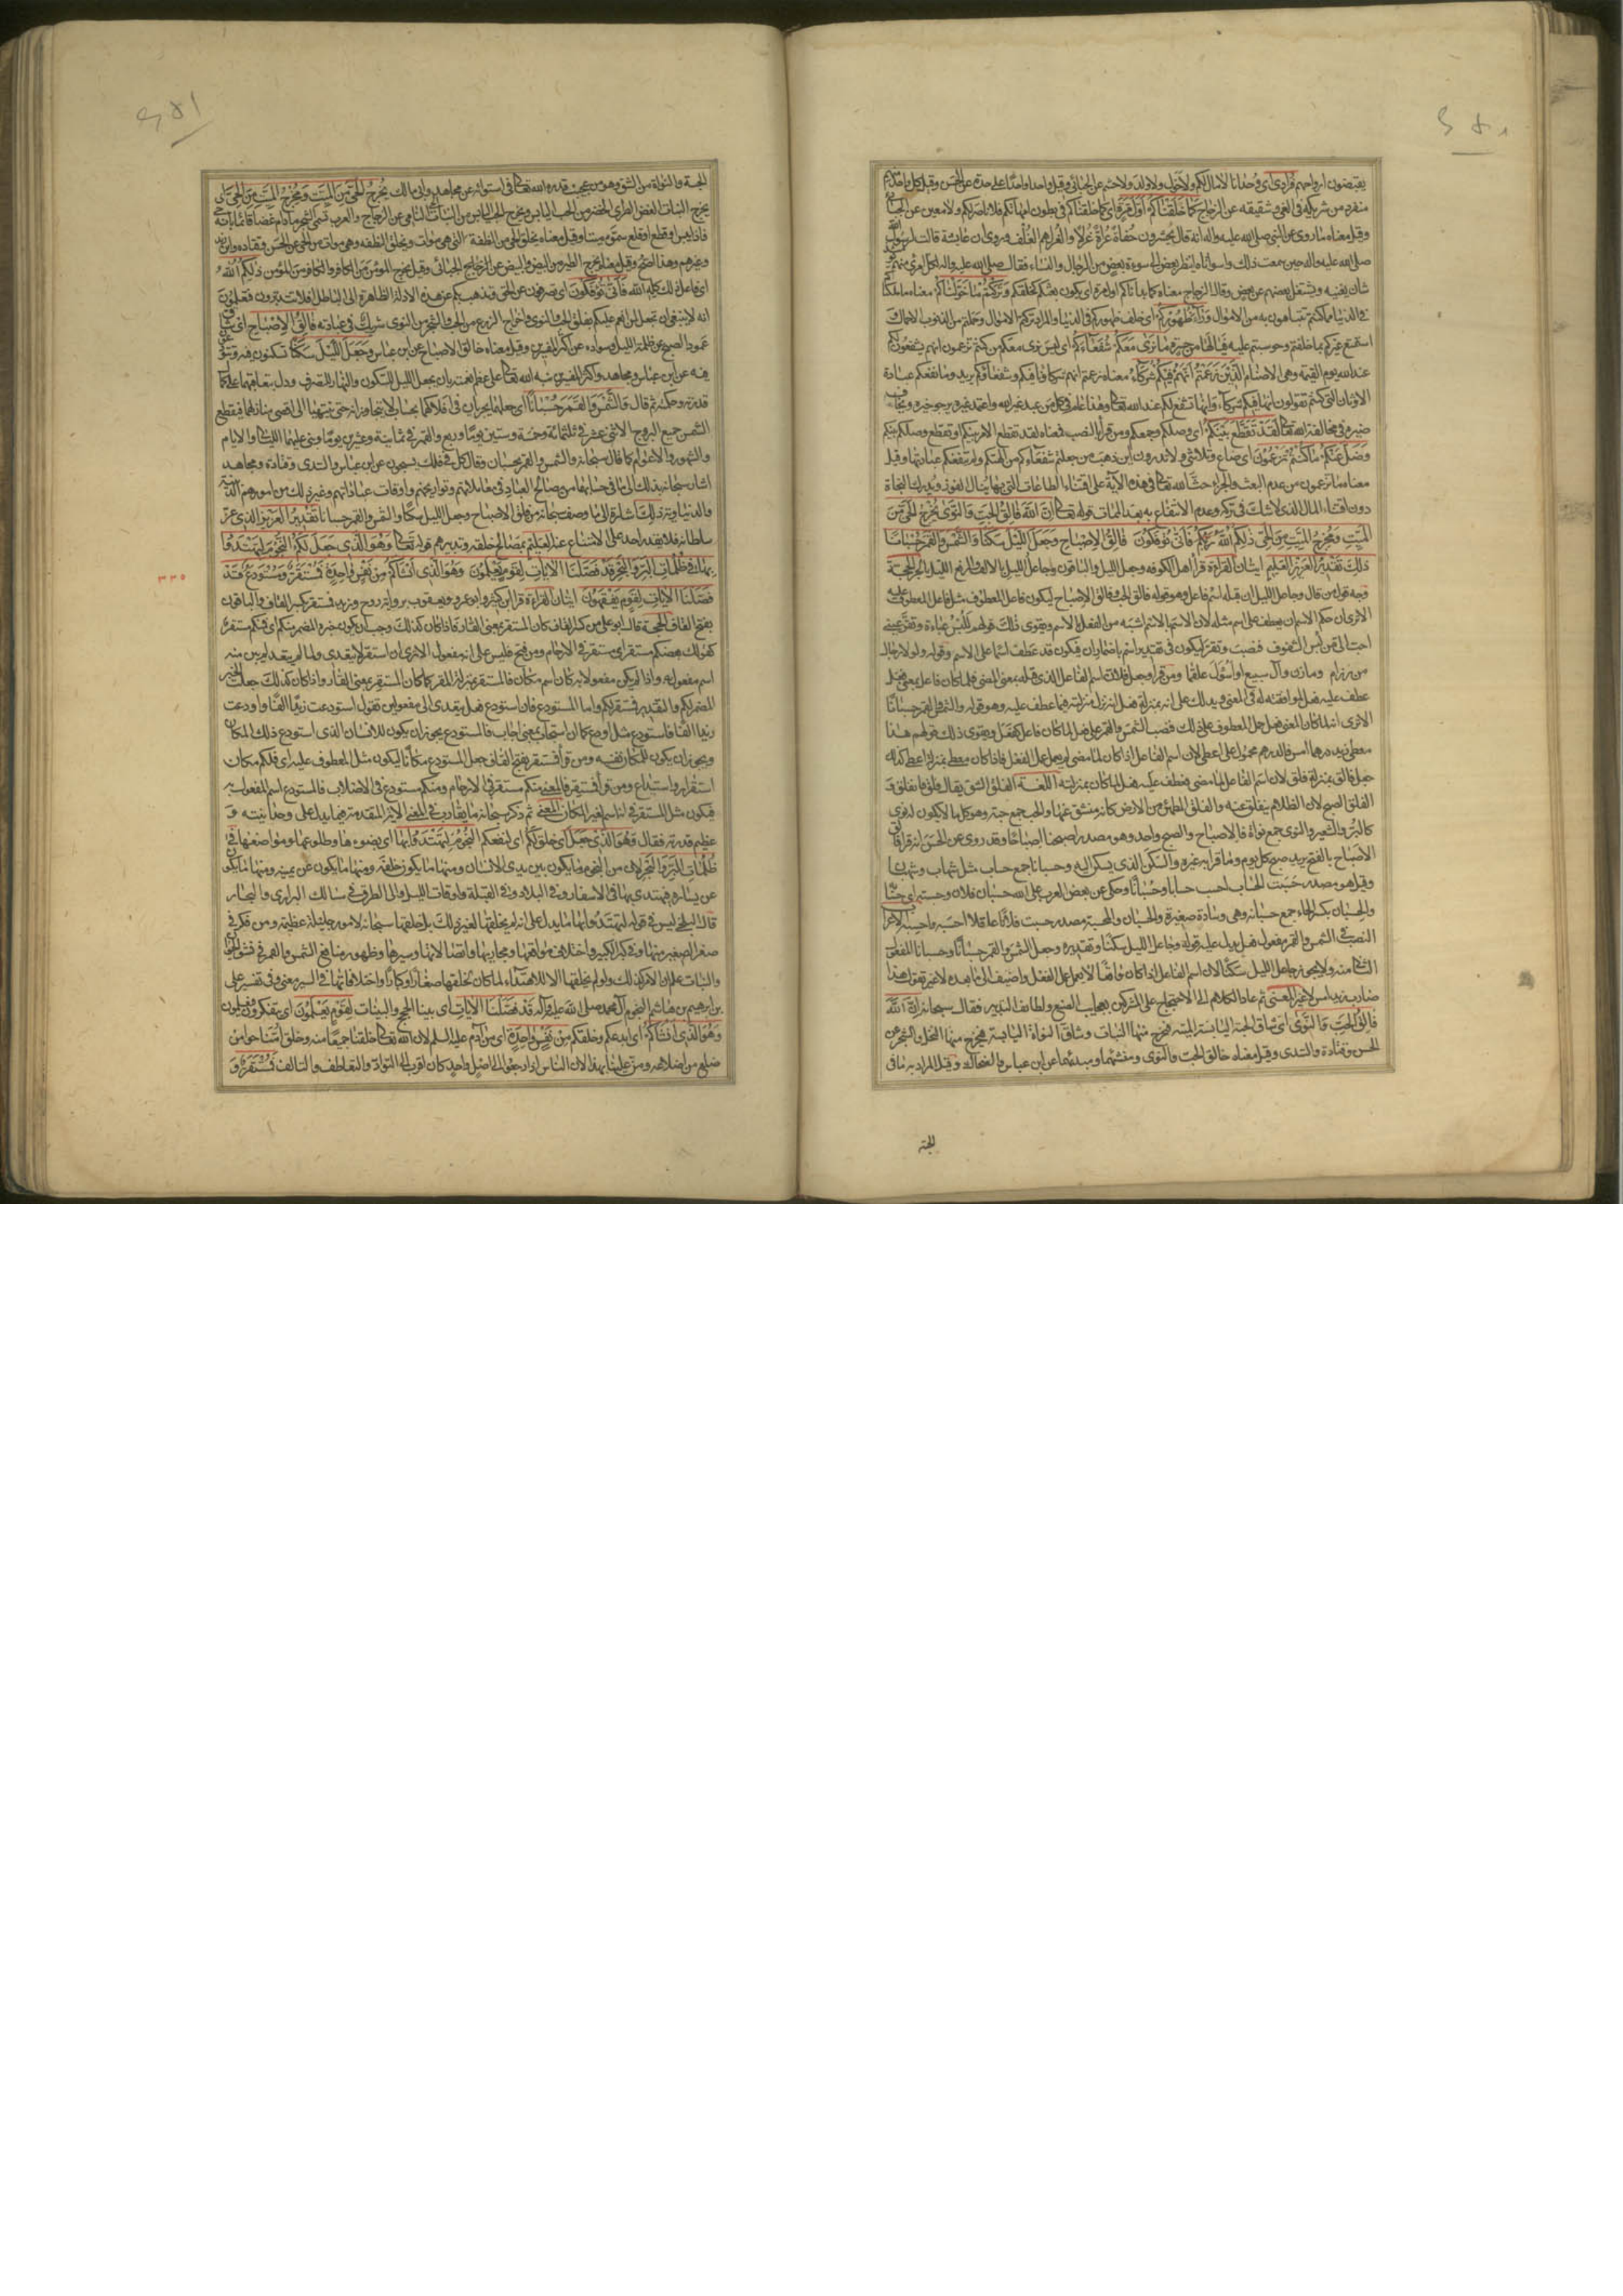 يقبضون ارواحهم فرادى اى وحدانا لا مال لكم ولا خول ولا ولد ولا حشم عن الجبائى وقيل واحدا واحدا على حدة عن الحسن وقيل كل واحد
منفرد من شريكه فى الغى وشقيقه عن الزجاج كما خلقناكم اول مرة اى كما خلقناكم فى بطون امهاتكم فلا ناصر لكم ولا معين عن الجبائى
وقيل معناه ما روى عن النبى صلى الله عليه واله انه قال يحشرون حفاة عراة غرلا والغرل هم الغلف وروى ان عايشة قالت لرسول الله
صلى الله عليه واله حين سمعت ذلك واسوأتاه اينظر بعضهم الى سوءة بعض من الرجال والنساء فقال صلى الله عليه واله لكل امرئ منهم يومئذ
شان يغنيه ويشتغل بعضهم عن بعض وقال الزجاج معناه كما بداناكم اول مرة اى يكون بعثكم كخلقكم وتركتم ما خولناكم معناه ما ملكناكم
فى الدنيا مما كنتم تتباهون به من الاموال وراء ظهوركم اى خلف ظهوركم فى الدنيا والمراد تركتم الاموال وحملتم من الذنوب الاحمال
استمتع غيركم بما خلفتم وحوسبتم عليه فيا لها من حسرة وما نرى معكم شفعاءكم اى ليس نرى معكم من كنتم تزعمون انهم يشفعون لكم
عند الله يوم القيمة وهى الاصنام الذين زعمتم انهم فيكم شركاء معناه زعمتم انهم شركاؤنا فيكم وشفعاؤكم يريد وما نفعكم عبادة
الاوثان التى كنتم تقولون انها فيكم شركاء وانها تشفع لكم عند الله تعالى وهذا عام فى كل من عبد غير الله واعتمد غيره يرجو خيره ويخاف
ضيره فى مخالفة الله تعالى لقد تقطع بينكم اى وصلكم وجمعكم ومن قرأ بالنصب فمعناه لقد تقطع الامر بينكم او تقطع وصلكم بينكم
وضل عنكم ما كنتم تزعمون اى ضاع وتلاشى ولا تدرون اين ذهب من جعلتم شفعاءكم من الهتكم ولم تنفعكم عبادتها وقيل
معناه ما تزعمون من عدم البعث والجزاء حث الله تعالى فى هذه الاية على اقتناء الطاعات التى بها ينال الفوز ويدرك النجاة
دون اقتناء المال الذى لا شك فى تركه وعدم الانتفاع به بعد الممات قوله تعالى ان الله فالق الحب والنوى يخرج الحى من
الميت ومخرج الميت من الحى ذلكم الله ربكم فانى تؤفكون فالق الاصباح وجعل الليل سكنا والشمس والقمر حسبانا
ذلك تقدير العزيز العليم ايتان القراءة قرأ اهل الكوفه وجعل الليل والباقون وجاعل الليل بالالف والرفع الليل بالجر الحجة
وجه قول من قال وجاعل الليل ان قبله اسم فاعل وهو قوله فالق الحب وفالق الاصباح ليكون فاعل المعطوف مثل فاعل المعطوف عليه
الا ترى ان حكم الاسم ان يعطف على اسم مثله لان الاسم بالاسم اشبه من الفعل بالاسم ويقوى ذلك قولهم للبس عباءة وتقر عينى
احب الى من لبس الشفوف فنصب وتقر ليكون فى تقدير اسم باضمار ان فيكون قد عطف اسما على الاسم وقوله ولولا رجال
من رزام ومازن وآل سبيع او اسوءك علقما ومن قرأ وجعل فلان اسم الفاعل الذى قبله بمعنى المضى فلما كان فاعل بمعنى فعل
عطف عليه فعل لموافقته له فى المعنى ويدلك على انه بمنزلة فعل انه نزل منزلته فيما عطف عليه وهو قوله والشمس والقمر حسبانا
الا ترى انه لما كان المعنى فعل حمل المعطوف على ذلك فنصب الشمس والقمر على فعل لما كان فاعل كفعل ويقوى ذلك قولهم هذا
معطى زيد درهما امس فالدرهم محمول على اعطى لان اسم الفاعل اذا كان لما مضى لم يعمل عمل الفعل فاذا كان معط بمنزلة اعطى كذلك
جعل فالق بمنزلة فلق لان اسم الفاعل لما مضى فعطف عليه فعل لما كان بمنزلته اللغة الفلق الشق يقال فلقه فانفلق و
الفلق الصبح لان الظلام ينفلق عنه والفلق المطمئن من الارض كانه منشق عنها والحب جمع حبة وهو كل ما لا يكون له نوى
كالبر والشعير والنوى جمع نواة والاصباح والصبح واحد وهو مصدر اصبحنا اصباحا وقد روى عن الحسن انه قرأ فالق
الاصباح بالفتح يريد صبح كل يوم وما قرأ به غيره والسكن الذى يسكن اليه وحسبانا جمع حساب مثل شهاب وشهبان
وقيل هو مصدر حسبت الحساب احسب حسابا وحسبانا وحكى عن بعض العرب على الله حسبان فلان وحسبته اى حسابه
والحسبان بكسر الحاء جمع حسبانة وهى وسادة صغيرة والحسبان والمحسبة مصدر حسبت فلانا عاقلا احسبه واحسبه الاعراب
النصب فى الشمس والقمر مفعول فعل يدل عليه قوله وجاعل الليل سكنا وتقديره وجعل الشمس والقمر حسبانا وحسبانا المفعول
الثانى منه ولا يجوز جاعل الليل سكنا لان اسم الفاعل اذا كان واقعا لا يعمل عمل الفعل واضيف الى ما بعده لا غير تقول هذا
ضارب زيد امس لا غير المعنى ثم عاد الكلام الى الاحتجاج على المشركين بعجايب الصنع ولطايف التدبير فقال سبحانه ان الله
فالق الحب والنوى اى شاق الحبة اليابسة الميتة فيخرج منها النبات وشاق النواة اليابسة فيخرج منها النخل والشجر عن
الحسن وقتادة والسدى وقيل معناه خالق الحب والنوى ومنشئهما ومبدئهما عن ابن عباس والضحاك وقيل المراد به ما فى
الحبة
الحبة والنواة من الشق وهو من عجيب قدرة الله تعالى فى استوائه عن مجاهد وابى مالك يخرج الحى من الميت ومخرج الميت من الحى اى
يخرج النبات الغض الطرى الخضر من الحب اليابس ويخرج الحب اليابس من النبات الحى النامى عن الزجاج والعرب تسمى الشجر ما دام غضا قائما بانه حى
فاذا يبس او قطع او قلع سموه ميتا وقيل معناه يخلق الحى من النطفة التى هى موات ويخلق النطفه وهى موات من الحى عن الحسن وقتاده وابن زيد
وغيرهم وهذا اصح وقيل معناه يخرج الطير من البيض والبيض من الطير عن الجبائى وقيل يخرج المؤمن من الكافر والكافر من المؤمن ذلكم الله
اى فاعل ذلك كله الله فانى تؤفكون اى تصرفون عن الحق ويذهب بكم عن هذه الادلة الظاهرة الى الباطل افلا تتدبرون فتعلمون
انه لا ينبغى ان تجعل لمن انعم عليكم بفلق الحب والنوى واخراج الزرع من الحب والشجر من النوى شريك فى عبادته فالق الاصباح اى شاق
عمود الصبح عن ظلمة الليل وسواده عن اكثر المفسرين وقيل معناه خالق الاصباح عن ابن عباس وجعل الليل سكنا تسكنون فيه وتتودعون
فيه عن ابن عباس ومجاهد واكثر المفسرين نبه الله تعالى على عظم نعمته بان جعل الليل للسكون والنهار للتصرف ودل بتعاقبهما على كمال
قدرته وحكمته ثم قال والشمس والقمر حسبانا اى جعلهما يجريان فى افلاكهما بحساب لا يتجاوزانه حتى ينتهيا الى اقصى منازلهما فيقطع
الشمس جميع البروج الاثنى عشر فى ثلثمائة وخمسة وستين يوما وربع والقمر فى ثمانية وعشرين يوما وبنى عليهما الليالى والايام
والشهور والاعوام كما قال سبحانه والشمس والقمر بحسبان وقال كل فى فلك يسبحون عن ابن عباس والسدى وقتادة ومجاهد
اشار سبحانه بذلك الى ما فى حسابهما من مصالح العباد فى معاملاتهم وتواريخهم واوقات عباداتهم وغير ذلك من امورهم الدينية
والدنياوية ذلك اشارة الى ما وصفه سبحانه من فلق الاصباح وجعل الليل سكنا والشمس والقمر حسبانا تقدير العزيز الذى عز
سلطانه فلا يقدر احد على الامتناع منه العليم بمصالح خلقه وتدبيرهم قوله تعالى وهو الذى جعل لكم النجوم لتهتدوا
بها فى ظلمات البر والبحر قد فصلنا الايات لقوم يعلمون وهو الذى انشأكم من نفس واحدة فمستقر ومستودع قد
فصلنا الايات لقوم يفقهون ايتان القراءة قرأ ابن كثير وابو عمرو ويعقوب برواية روح وزيد فمستقر بكسر القاف والباقون
بفتح القاف الحجة قال ابو على من كسر القاف كان المستقر بمعنى القار واذا كان كذلك وجب ان يكون خبره المضمر منكم اى فمنكم مستقر
كقولك بعضكم مستقر اى مستقر فى الارحام ومن فتح فليس على انه مفعول الا ترى ان استقر لا يتعدى ولما لم يتعد لم يبن منه
اسم مفعول به واذا لم يكن مفعولا به كان اسم مكان فالمستقر بمنزلة المقر كما كان المستقر بمعنى القار واذا كان كذلك جعلت الخبر
المضمر لكم والتقدير فمستقر لكم واما المستودع فان استودع فعل يتعدى الى مفعولين تقول استودعت زيدا الفا واودعت
زيدا الفا فاستودع مثل اودع كما ان استجاب بمعنى اجاب فالمستودع يجوز ان يكون للانسان الذى استودع ذلك المكان
ويجوز ان يكون المكان نفسه ومن قرأ فمستقر بفتح القاف جعل المستودع مكانا ليكون مثل المعطوف عليه اى فلكم مكان
استقرار واستيداع ومن قرأ فمستقر فالمعنى منكم مستقر فى الارحام ومنكم مستودع فى الاصلاب فالمستودع اسم المفعول به
فيكون مثل المستقر فى انه اسم لغير المكان المعنى ثم ذكر سبحانه ما يقارب فى المعنى الاية المتقدمة فيما يدل على وحدانيته و
عظيم قدرته فقال وهو الذى جعل اى خلق لكم اى لنفعكم النجوم لتهتدوا بها اى بضوءها وطلوعها ومواضعها فى
ظلمات البر والبحر لان من النجوم ما يكون بين يدى الانسان ومنها ما يكون خلفه ومنها ما يكون عن يمينه ومنها ما يكون
عن يساره فيهتدى بها فى الاسفار وفى البلاد وفى القبلة واوقات الليل والى الطرق فى مسالك البرارى والبحار
قال البلخى ليس فى قوله لتهتدوا بها ما يدل على انه لم يخلقها لغير ذلك بل خلقها سبحانه لامور جليلة عظيمة ومن فكر فى
صغر الصغير منها وفى كبر الكبير واختلاف مواقعها ومجاريها واتصالاتها وسيرها وظهور منافع الشمس والقمر فى نشو الحيوان
والنبات علم ان الامر كذلك ولو لم يخلقها الا للاهتداء لما كان لخلقها صغارا وكبارا واختلافاتها فى السير معنى وفى تفسير على
بن ابرهيم بن هاشم النجوم آل محمد صلى الله عليه وآله قد فصلنا الايات اى بينا الحجج والبينات لقوم يعلمون اى يتفكرون فيعلمون
وهو الذى انشأكم اى ابدعكم وخلقكم من نفس واحدة اى من آدم عليه السلم لان الله تعالى خلقنا جميعا منه وخلق امنا حوا من
ضلع من اضلاعه ومن علينا بهذا لان الناس اذا رجعوا الى اصل واحد كان اقرب الى التواد والتعاطف والتالف فمستقر و
٣٣٥